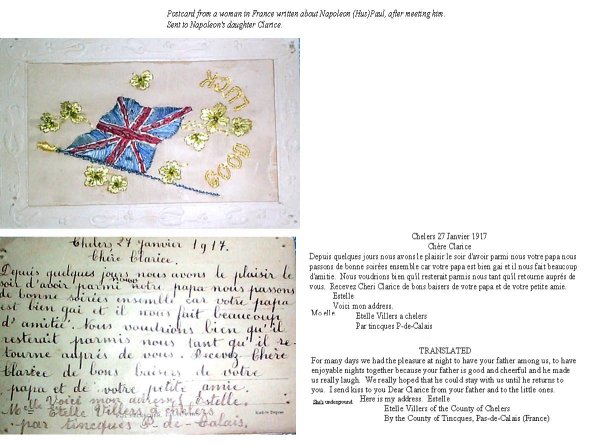 Postcard from a woman in France written about Napoleon (Hus)Paul, after meeting him.
Sent to Napoleon's daughter Clarice.
GOOD
LUCK
Chelers 27 Janvier 1917.
Chère Clarice.
Depuis quelques jours nous avons le plaisir le
soir d'avoir parmi nous votre papa nous passons
de bonne soirées ensemble car votre papa
est bien gai et il nous fait beaucoup
d'amitié. Nous voudrions bien qu'il
resterait parmis nous tant qu'il re-
tourne auprès de vous. Recevez Chère
Clarice de bons baisers de votre
papa et de votre petite amie.
Voici mon adress Estelle.
Melle Estelle Villers à chelers
par tincques P-de-Calais.
Chelers 27 Janvier 1917
Chère Clarice
Depuis quelques jours nous avons le plaisir le soir d'avoir parmi nous votre papa nous
passons de bonne soirées ensemble car votre papa est bien gai et il nous fait beaucoup
d'amitie. Nous voudrions bien qu'il resterait parmis nous tant qu'il retourne auprés de
vous. Recevez Cheri Clarice de bons baisers de votre papa et de votre petite amie.
Estelle
Voici mon address.
Mo elle Estelle Villers a chelers
Par tincques P-de-Calais
TRANSLATED
For many days we had the pleasure at night to have your father among us, to have
enjoyable nights together because your father is good and cheerful and he made
us really laugh. We really hoped that he could stay with us until he returns to
you. I send kiss to you Dear Clarice from your father and to the little ones.
She's underground. Here is my address. Estelle
Estelle Villers of the County of Chelers
By the County of Tincques, Pas-de-Calais (France)